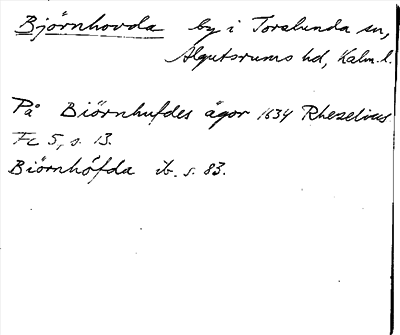 Björnhovda by i Torslunda sn,
Algutsrums hd, Kalm. l.
På Biörnhufdes ägor 1634 Rhezelius
Fc 5, s. 13.
Biörnhöfda ib. s. 83.